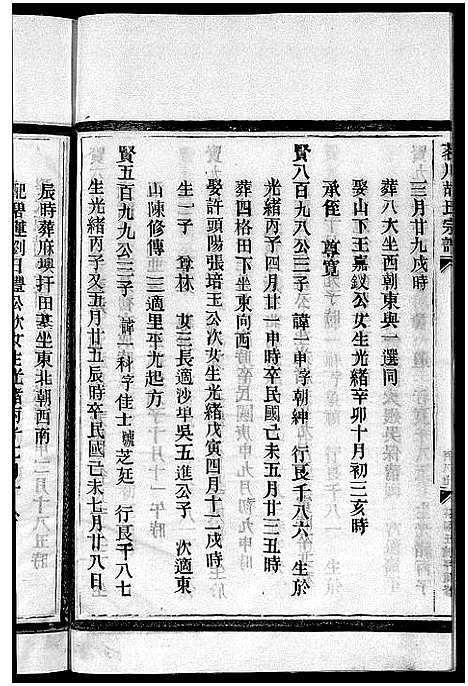 三月廿九戌時
葬八大坐西朝東與一選同
娶山下王嘉釵公女生光緒辛卯十月初三亥時
承侄 尊寬
賢八百九八公三子 諱一申字朝紳 行良千八六 生於
光緒丙子四月廿一申時卒民國己未五月廿三丑時
葬四格田下坐東向西
娶許頭陽張培玉公次女生光緒戊寅四月十二戌時
生一子 尊林 女三長適沙埠吳五進公子 次適東
山陳修傳 三適里平九起方
賢五百九九公三子 諱一科字佳士號芝廷 行良千八七
生光緒丙子又五月廿五辰時卒民國己未七月廿八日
辰時葬麻墺扦田墓坐東北朝西南